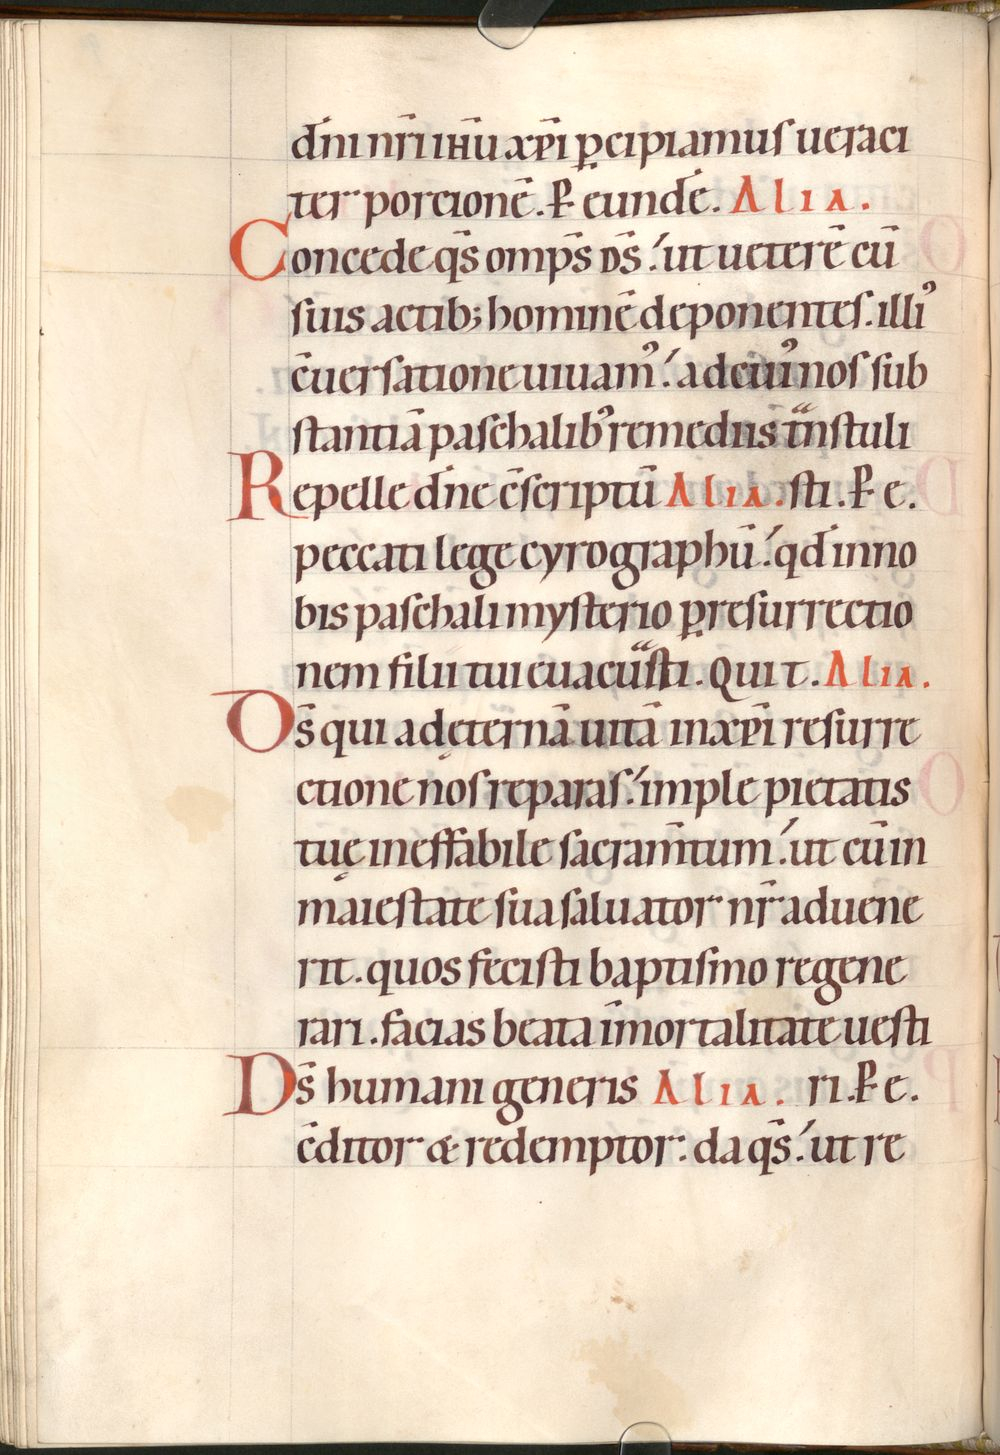 dn̄i nr̄i ih̄u xp̄i ꝑcipiamus ueraci
ter portionē. P̄ eundē. Alia.
Concede qs̄ omp̄s ds̄ ut ueterē cū
suis actib; hominē deponentes. illiꝰ
c̄uersatione uiuamꝰ. ad cuiꝰ nos sub
stantiā paschalibꝰ remediis tn̄stuli
Repelle dn̄e c̄scriptū Alia. sti. P̄ e.
peccati lege cyrographū. qd̄ in no
bis paschali mysterio ꝑ resurrectio
nem filii tui euacuasti. Qui t. Alia.
Ds̄ qui ad ęternā uitā in xp̄i resurre
ctione nos reparas. imple pietatis
tuę ineffabile sacram̄tum. ut cū in
maiestate sua saluator nr̄ aduene
rit. quos fecisti baptismo regene
rari. facias beata īmortalitate uesti
Ds̄ humani generis Alia. ri. P̄ e.
c̄ditor & redemptor. da qs̄. ut re